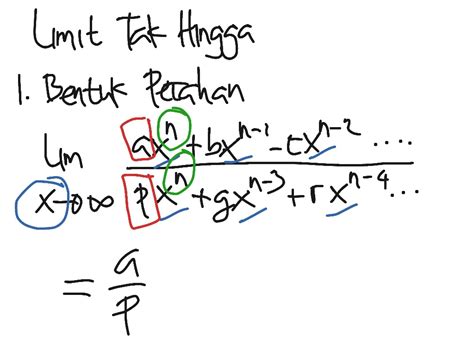 Limit Tak Hingga
1. Bentuk Pecahan
Lim x→∞ (ax^n + bx^(n-1) - cx^(n-2) ....) / (px^n + gx^(n-3) + rx^(n-4) ...)
= a/p